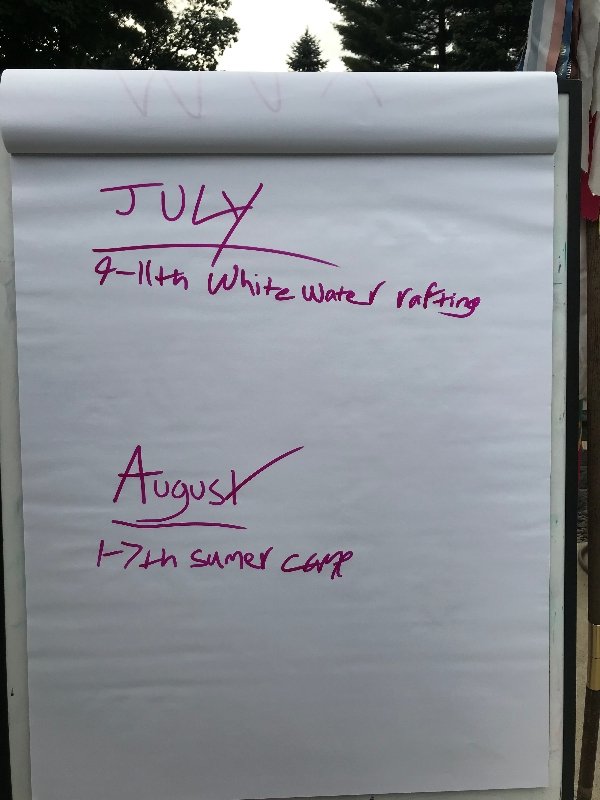 JULY
4-11th White Water rafting
August
1-7th sumer camp